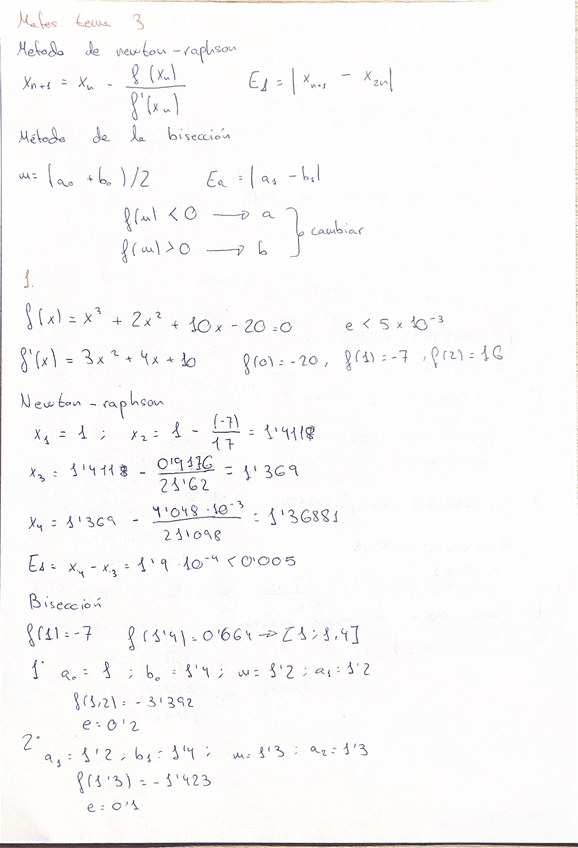 Mates tema 3
Metodo de newton-raphson
xn+1 = xn - f(xn)/f'(xn)    E1 = |xn+1 - x2n|
Método de la bisección
m = (a0 + b0)/2    Ea = |a1 - b1|
f(m) < 0 → a
f(m) > 0 → b } cambiar
1.
f(x) = x³ + 2x² + 10x - 20 = 0    e < 5 x 10⁻³
f'(x) = 3x² + 4x + 10    f(0) = -20, f(1) = -7, f(2) = 16
Newton-raphson
x1 = 1 ; x2 = 1 - (-7)/17 = 1'4118
x3 = 1'4118 - 0'9176/21'62 = 1'369
x4 = 1'369 - 4'048·10⁻³/21'098 = 1'36881
E1 = x4 - x3 = 1'9·10⁻⁴ < 0'005
Bisección
f(1) = -7    f(1'4) = 0'664 → [1 ; 1,4]
1· a0 = 1 ; b0 = 1'4 ; m = 1'2 ; a1 = 1'2
f(1,2) = -3'392
e = 0'2
2· a1 = 1'2 ; b1 = 1'4 ; m = 1'3 ; a2 = 1'3
f(1'3) = -1'423
e = 0'1